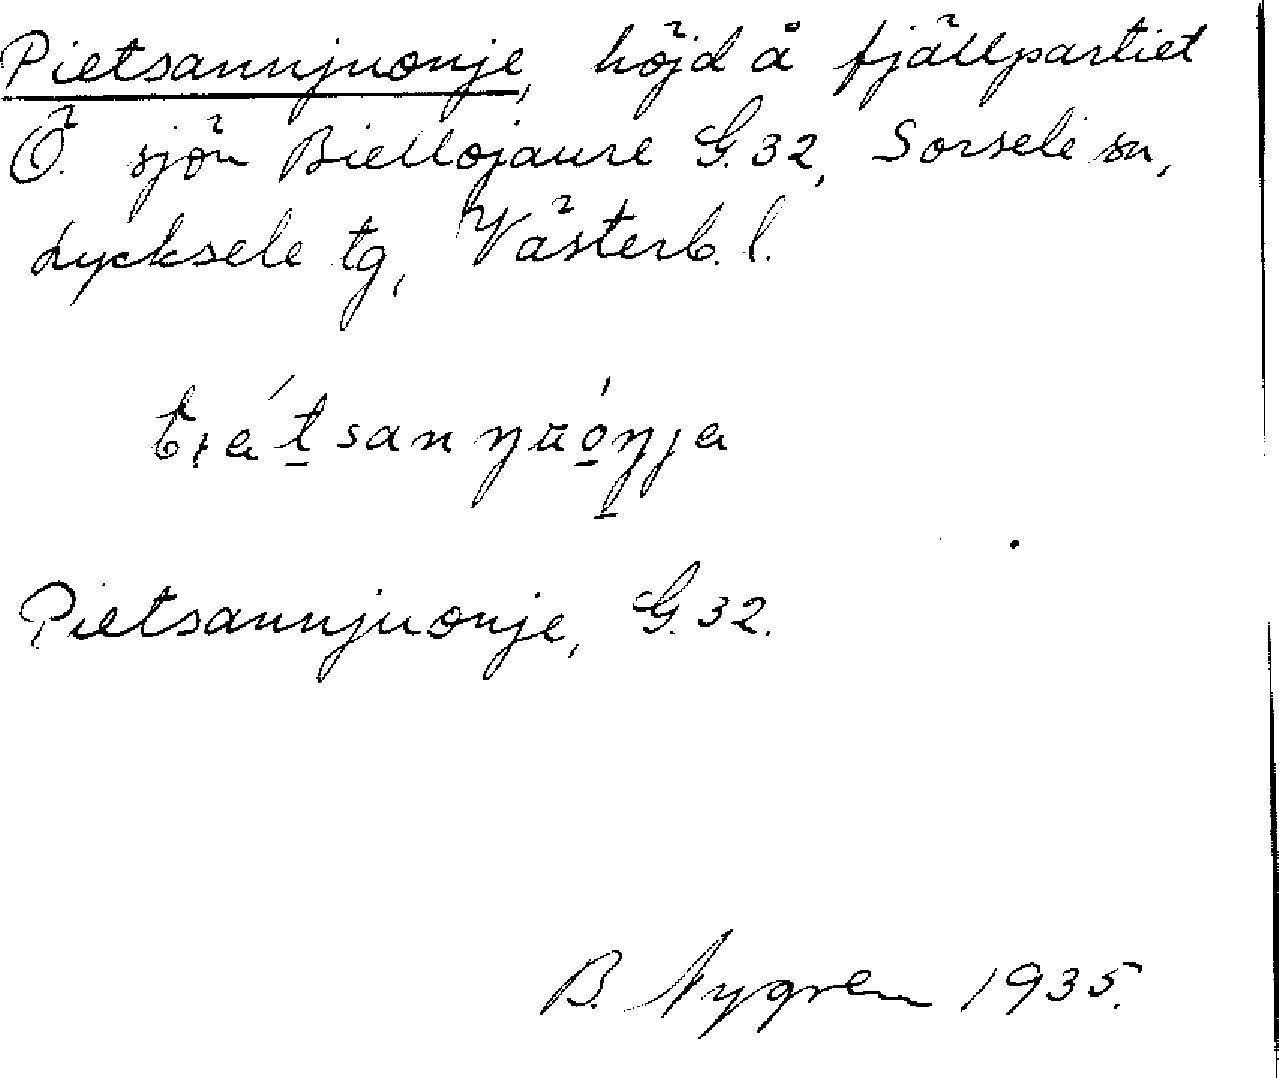 Pietsannjuonje, höjd å fjällpartiet
Ö. sjön Biellojaure G.32, Sorsele sn,
Lycksele tg, Västerb. l.
Pietsannjuonje, G.32.
B. Nygren 1935.